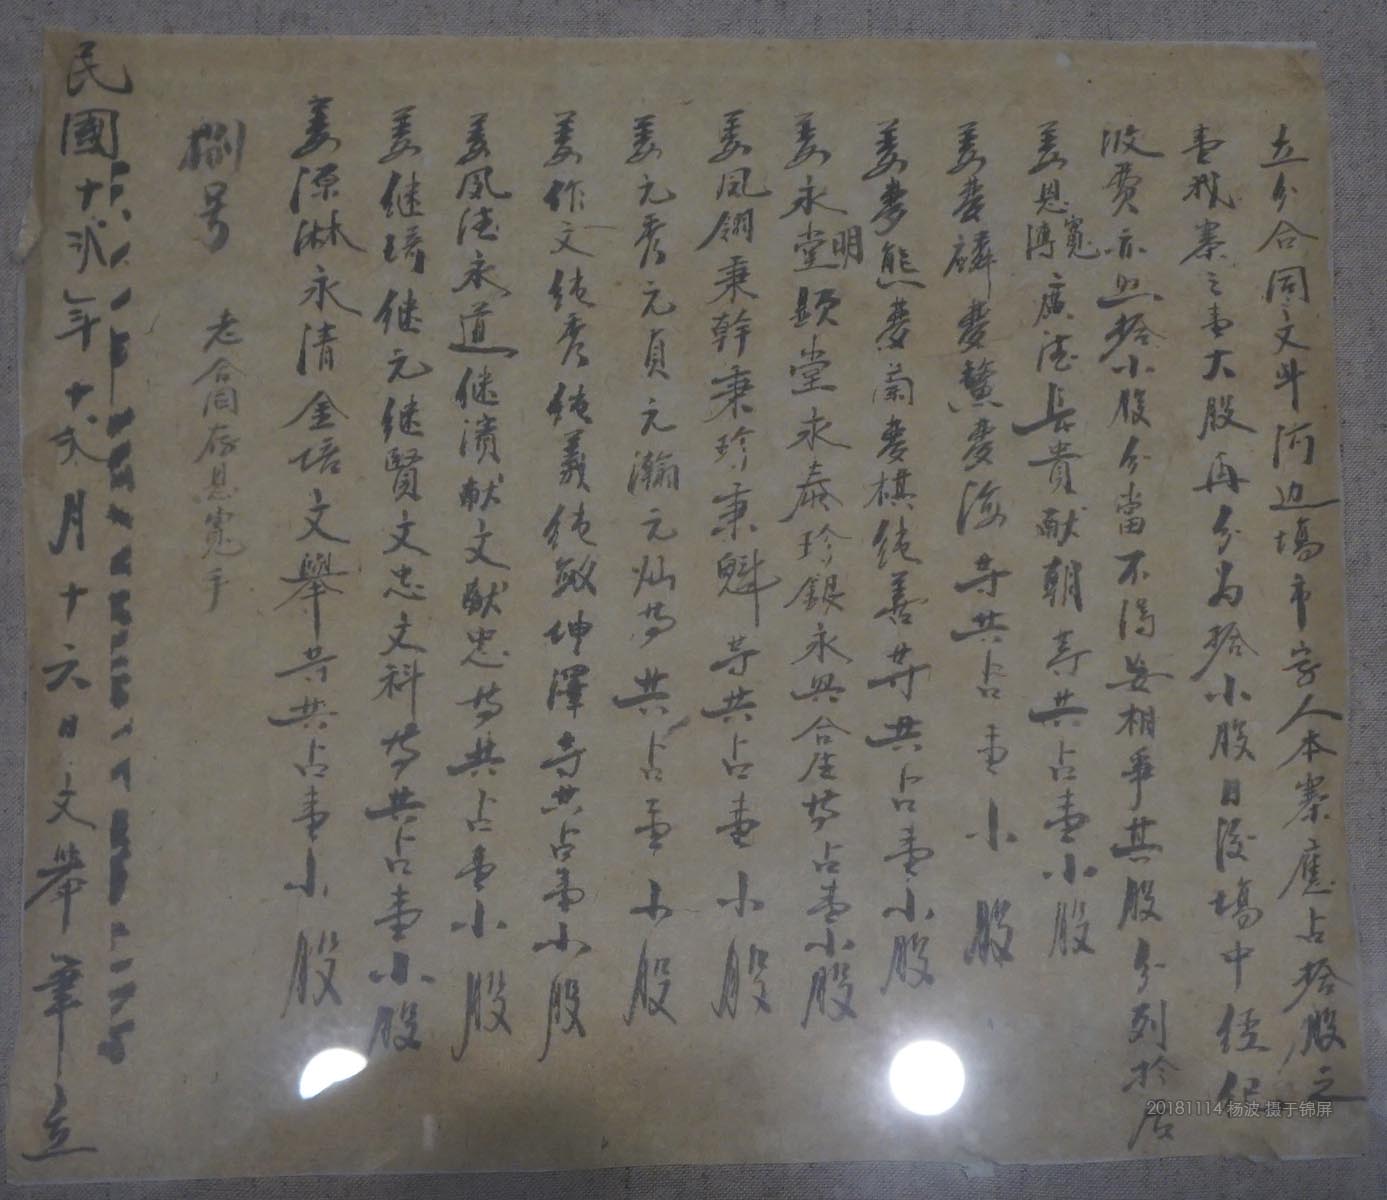 立分合同文斗河边塲市家人本寨應占拾股之
壹我寨之壹大股再分为拾小股日後塲中经纪
收费亦照拾小股分當不淂妄相争其股分列於后
姜恩寬溥廣德長貴献朝等共占壹小股
姜慶麟慶鰲慶海等共占壹小股
姜夢熊慶蘭夢棋純善等共占壹小股
姜永堂明顕堂永泰珍銀永興合居等占壹小股
姜凤翎秉幹秉珍秉魁等共占壹小股
姜元秀元貞元瀚元灿等共占壹小股
姜作文纯秀纯義纯敏坤澤等共占壹小股
姜凤德永道继濆献文献忠等共占壹小股
姜继琦继元继賢文忠文科等共占壹小股
姜源淋永清金培文舉等共占壹小股
捌号 老合同存恩寬手
民國十弍年十弍月十六日文舉筆立
20181114 杨波 摄于锦屏